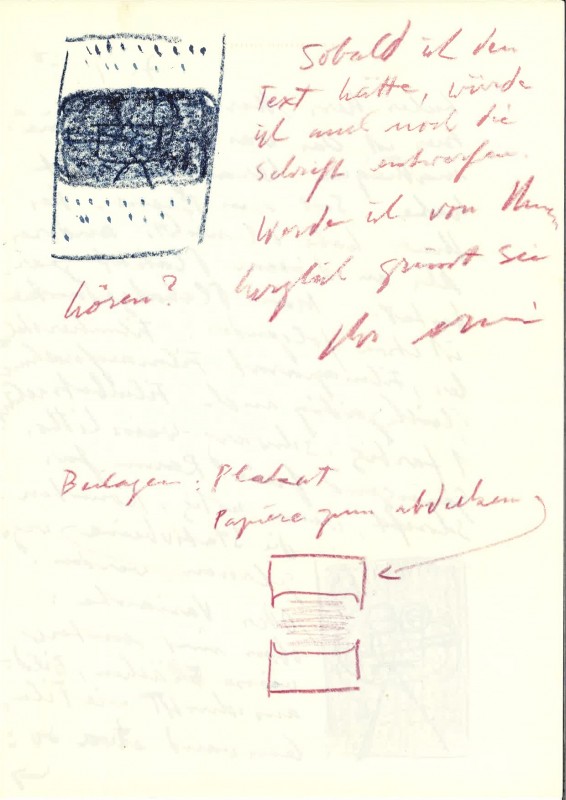 Sobald ich den
Text hätte, würde
ich auch noch die
Schrift entwerfen.
Werde ich von Ihnen
hören? herzlich grüsst Sie
Ihr
Beilagen: Plakat
Papiere zum abdecken